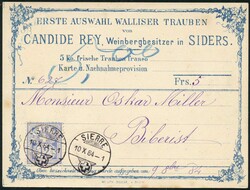 ERSTE AUSWAHL WALLISER TRAUBEN
VON
CANDIDE REY, Weinbergbesitzer in SIDERS.
5 Ko frische Trauben franco
Karte u. Nachnahmeprovision
No 625 Frs. 5
Monsieur Oskar Miller
Biberist
SIERRE
10 X 84 - 1
SIERRE
10 X 84 - 1